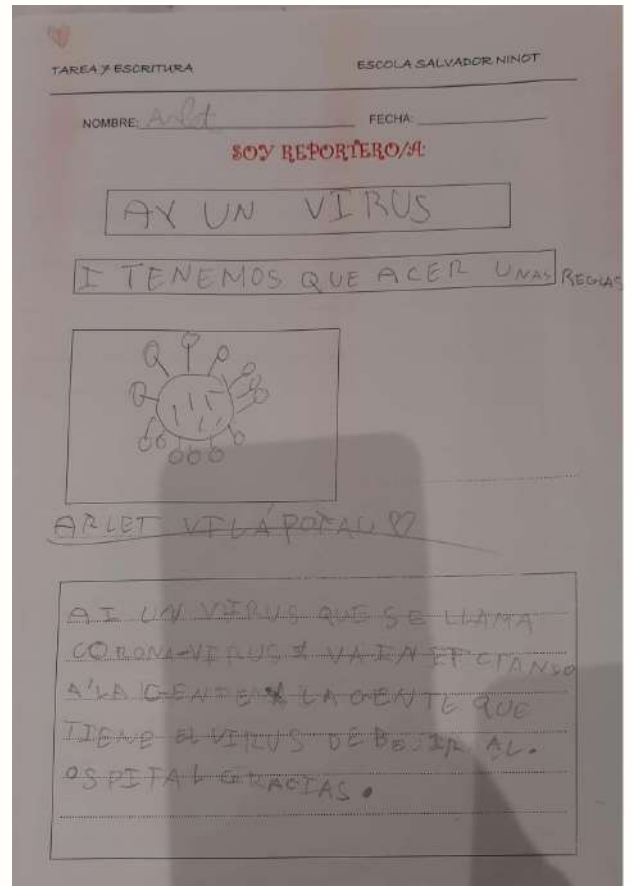 TAREA 7 ESCRITURA
ESCOLA SALVADOR NINOT
NOMBRE: Arlet
FECHA:
SOY REPORTERO/A:
AY UN VIRUS
I TENEMOS QUE ACER UNAS REGLAS
ARLET VILÁ
AI UN VIRUS QUE SE LLAMA
CORONA-VIRUS I VA INFECTANDO
A LA GENTE LA GENTE QUE
TIENE EL VIRUS DEBE IR AL.
OSPITAL GRACIAS.